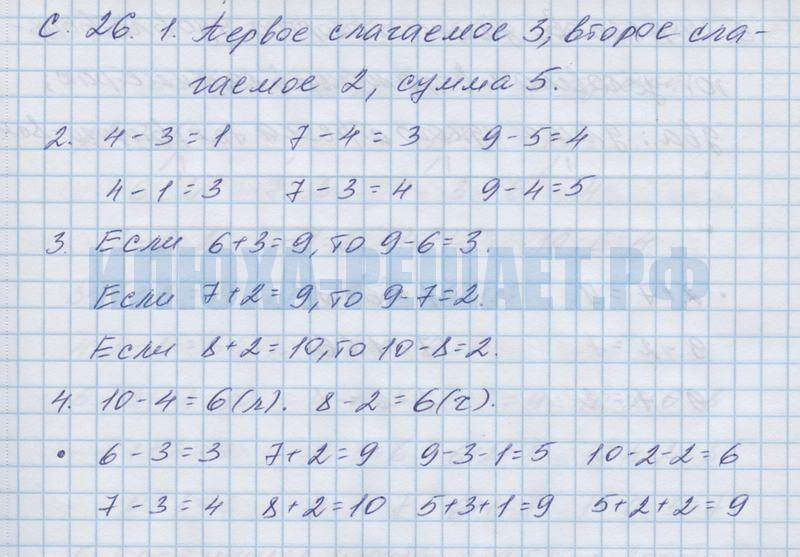 С. 26. 1. Первое слагаемое 3, второе сла-
гаемое 2, сумма 5.
2. 4 - 3 = 1 7 - 4 = 3 9 - 5 = 4
4 - 1 = 3 7 - 3 = 4 9 - 4 = 5
3. Если 6 + 3 = 9, то 9 - 6 = 3.
ИЛЮХА-РЕШАЕТ.РФ
Если 7 + 2 = 9, то 9 - 7 = 2.
Если 8 + 2 = 10, то 10 - 8 = 2.
4. 10 - 4 = 6 (л). 8 - 2 = 6 (г).
• 6 - 3 = 3 7 + 2 = 9 9 - 3 - 1 = 5 10 - 2 - 2 = 6
7 - 3 = 4 8 + 2 = 10 5 + 3 + 1 = 9 5 + 2 + 2 = 9